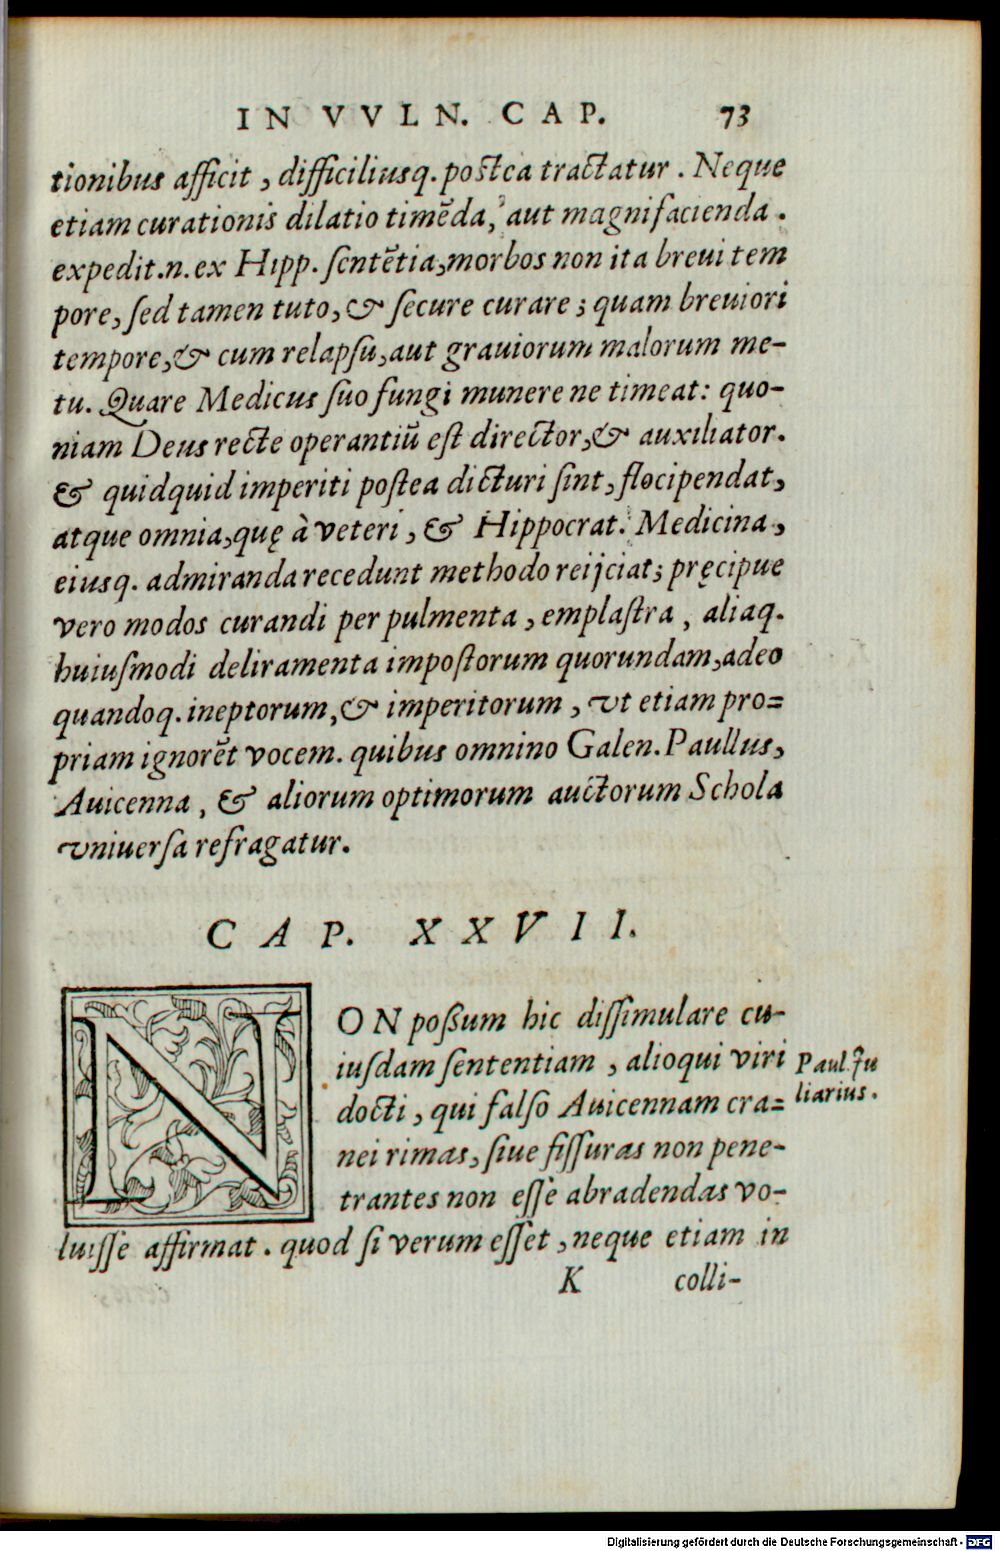 IN VVLN. CAP. 73
tionibus afficit, difficiliusq. postea tractatur. Neque
etiam curationis dilatio timẽda, aut magnifacienda.
expedit.n.ex Hipp. sentẽtia, morbos non ita breui tem
pore, sed tamen tuto, & secure curare; quam breuiori
tempore, & cum relapsu, aut grauiorum malorum me-
tu. Quare Medicus suo fungi munere ne timeat: quo-
niam Deus recte operantiũ est director, & auxiliator.
& quidquid imperiti postea dicturi sint, flocipendat,
atque omnia, quę à veteri, & Hippocrat. Medicina,
eiusq. admiranda recedunt methodo reijciat; pręcipue
vero modos curandi per pulmenta, emplastra, aliaq.
huiusmodi deliramenta impostorum quorundam, adeo
quandoq. ineptorum, & imperitorum, vt etiam pro=
priam ignorẽt vocem. quibus omnino Galen. Paullus,
Auicenna, & aliorum optimorum auctorum Schola
vniuersa refragatur.
CAP. XXVII.
NON possum hic dissimulare cu-
iusdam sententiam, alioqui viri
docti, qui falso Auicennam cra=
nei rimas, siue fissuras non pene-
trantes non esse abradendas vo-
luisse affirmat. quod si verum esset, neque etiam in
Paul. Iu
liarius.
K colli-
Digitalisierung gefördert durch die Deutsche Forschungsgemeinschaft - DFG